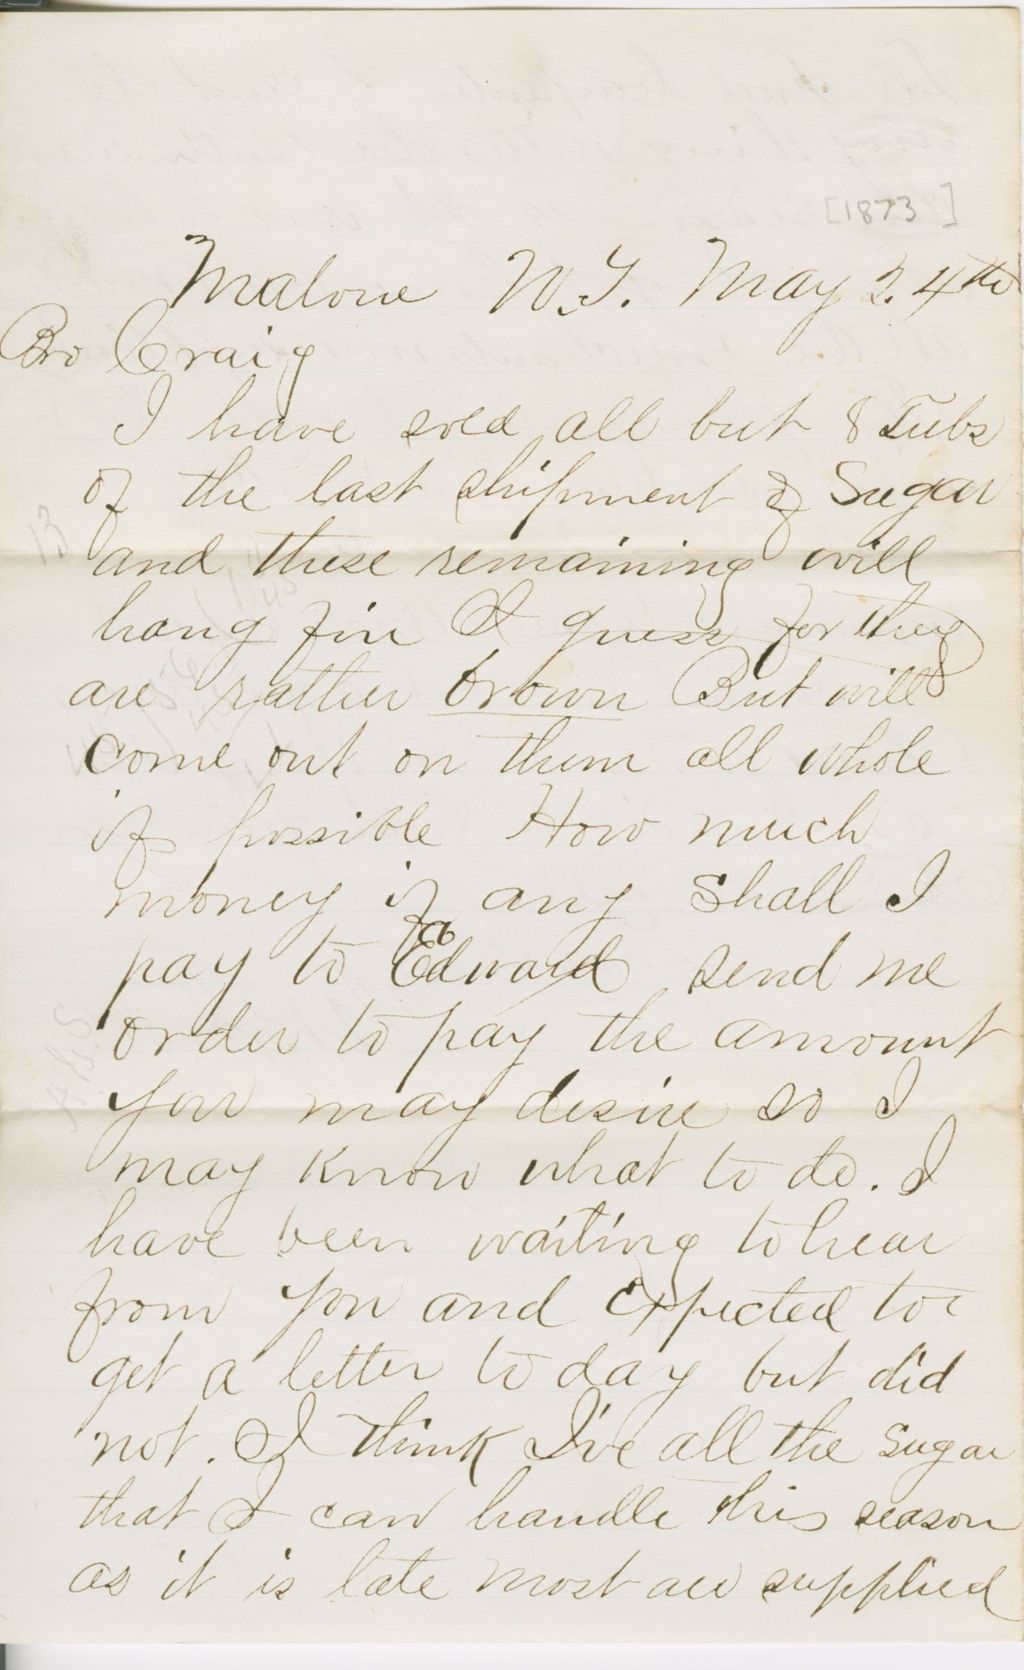 [1873]
Malone N.Y. May 24th
Bro Craig
I have sold all but 8 Tubs
of the last shipment of Sugar
and these remaining will
hang fire I guess for they
are rather brown But will
come out on them all whole
if possible How much
money if any shall I
pay to Edward send me
order to pay the amount
you may desire so I
may know what to do. I
have been waiting to hear
from you and expected to
get a letter to day but did
not. I think I've all the sugar
that I can handle this season
as it is late most are supplied